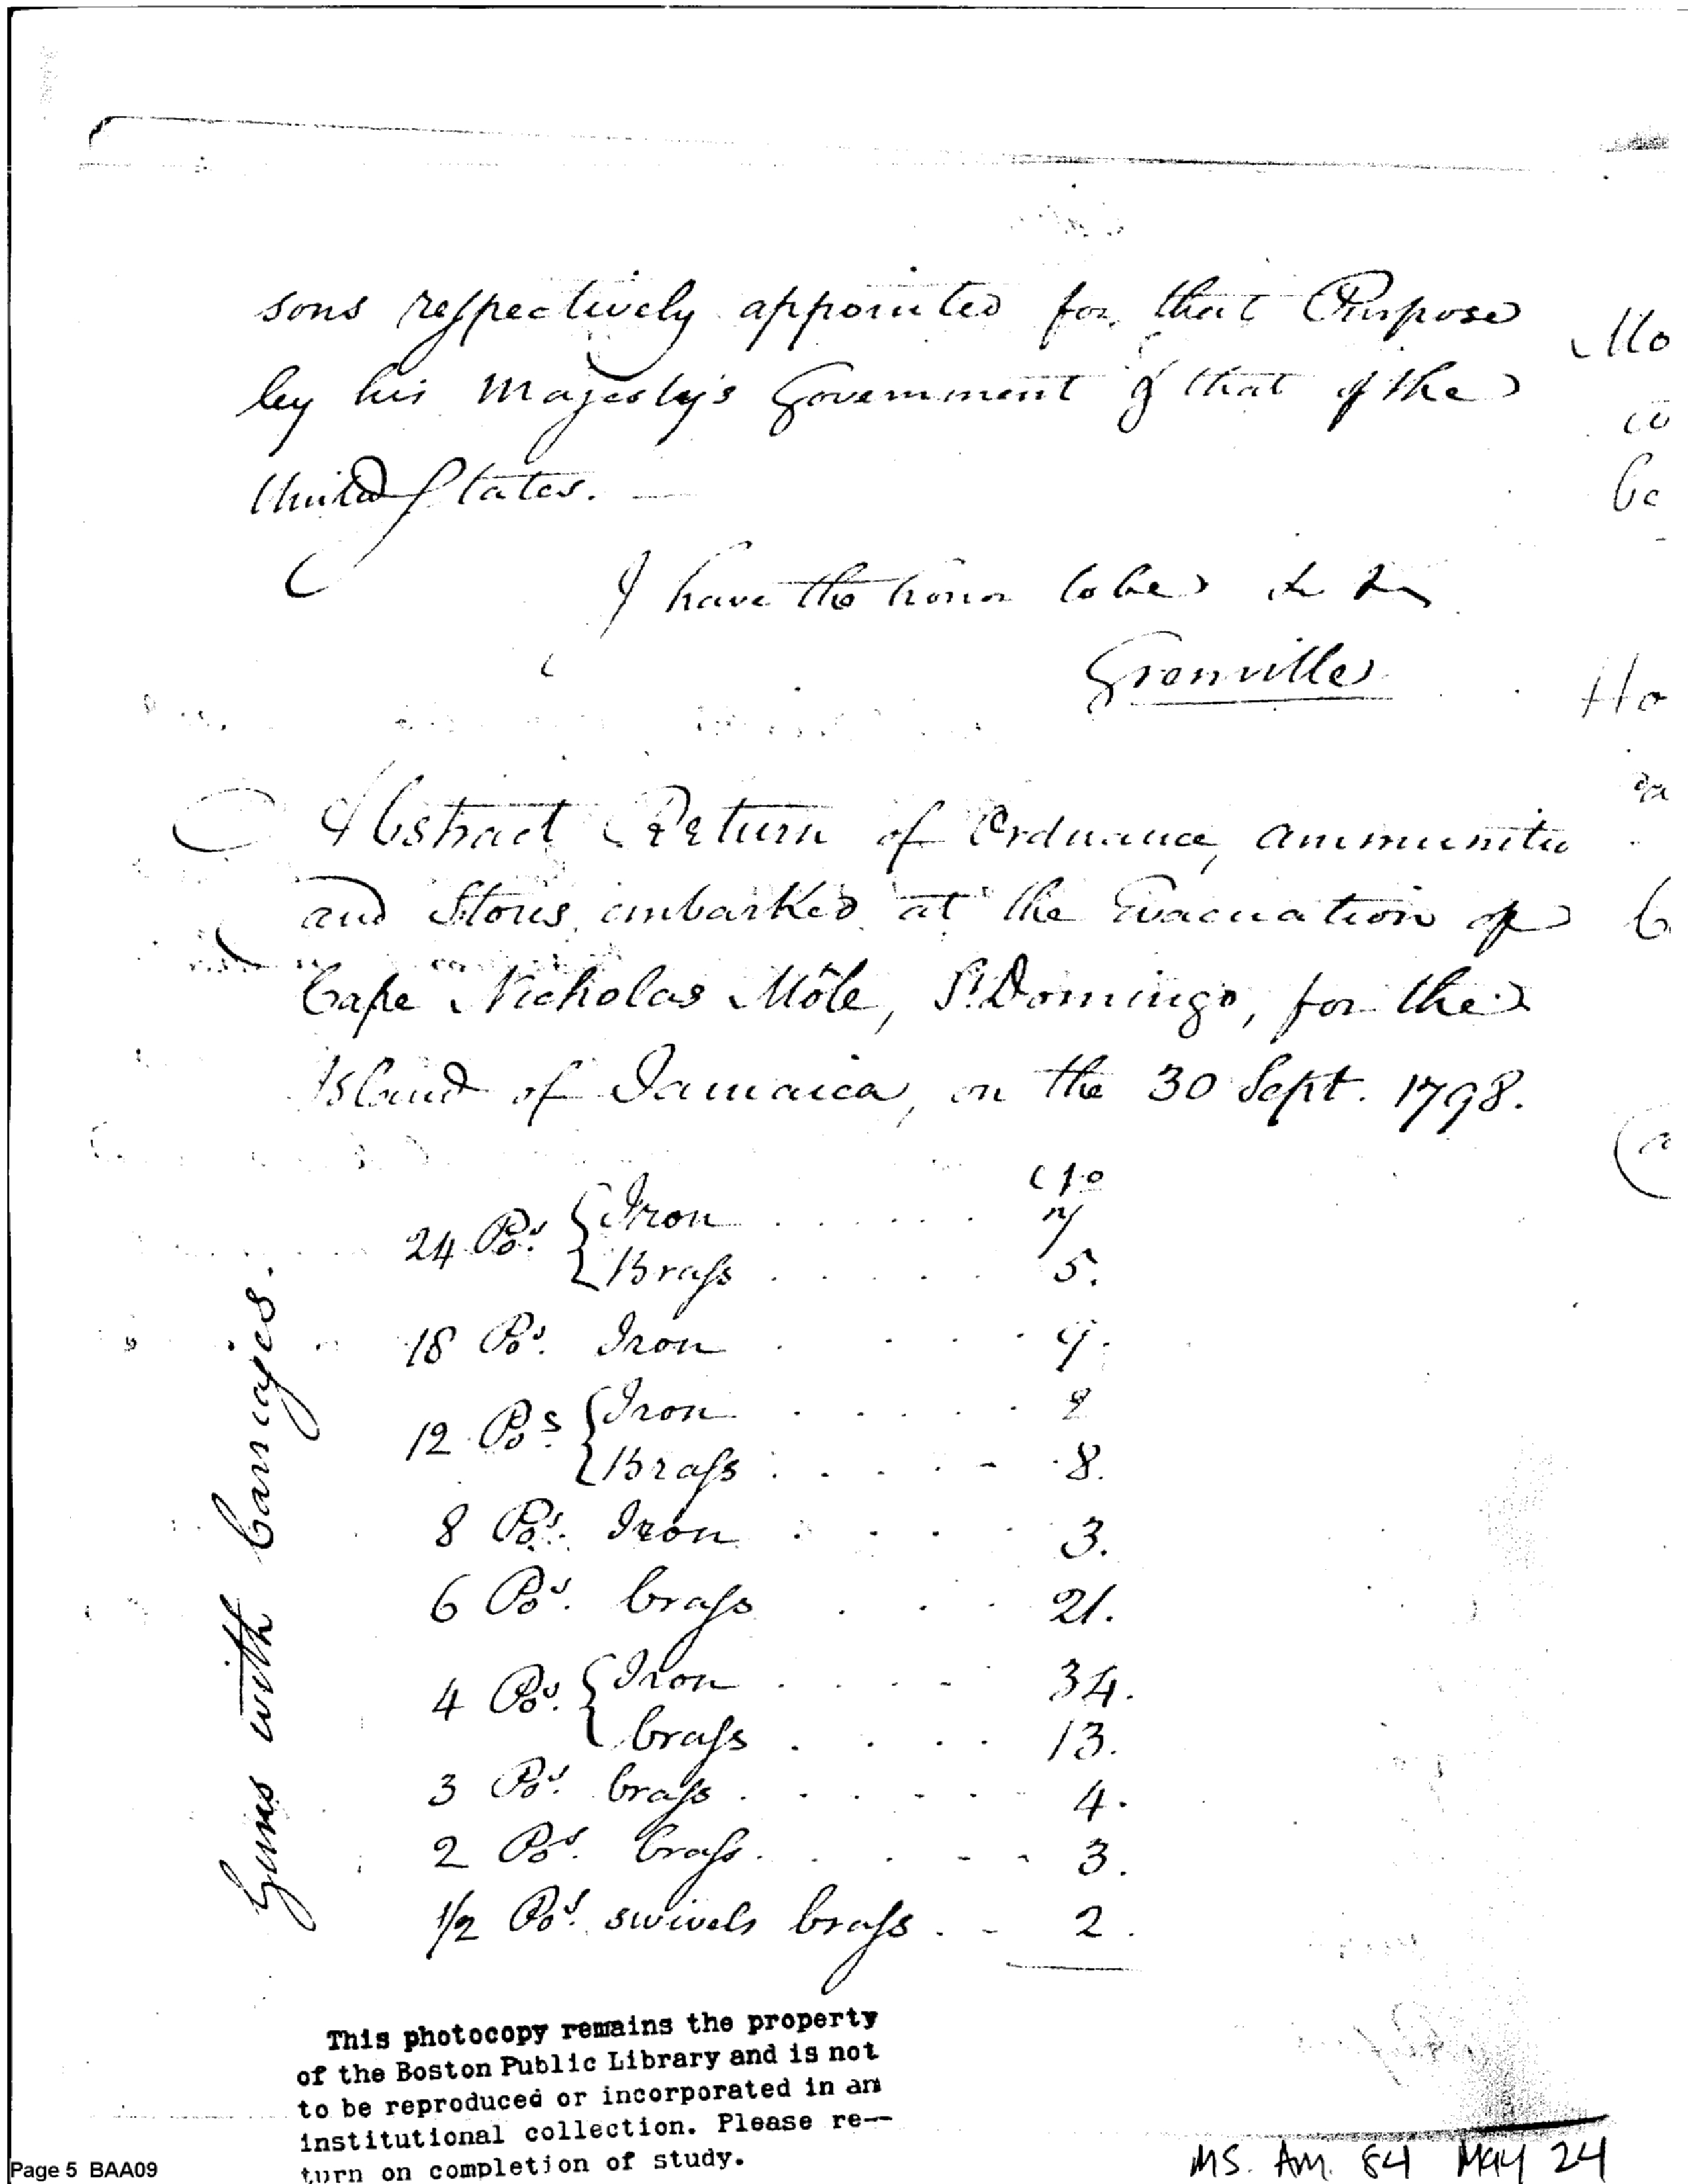 sons respectively appointed for that Purpose
by his Majesty's Government & that of the
United States. —
I have the honor to be &c &c
Grenville
Abstract Return of Ordnance, ammunitio
and Stores embarked at the Evacuation of
Cape Nicholas Môle, St. Domingo, for the
Island of Jamaica, on the 30 Sept. 1798.
Guns with Carriages.
No
24 Pos. { Iron . . . . . 7
{ Brass . . . . . 5.
18 Pos. Iron . . . .
12 Pos. { Iron . . . . .
{ Brass . . . . - 8.
8 Pos. Iron . . . . 3.
6 Pos. brass . . . 21.
4 Pos. { Iron . . . - 34.
brass . . . . 13.
3 Pos. brass . . . . - - 4.
2 Pos. brass. . . - - 3.
1/2 Pos. swivels brass . - 2.
This photocopy remains the property
of the Boston Public Library and is not
to be reproduced or incorporated in an
institutional collection. Please re—
turn on completion of study.
Page 5 BAA09
MS. Am. 84 MAY 24